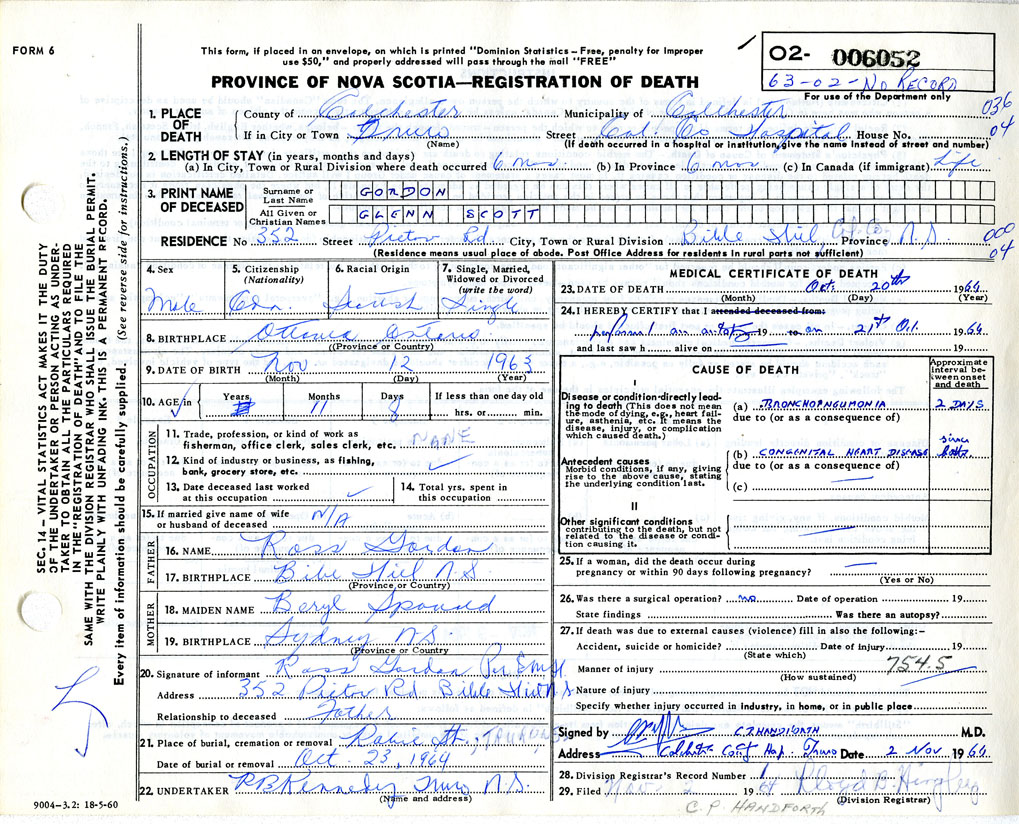 FORM 6
This form, if placed in an envelope, on which is printed "Dominion Statistics – Free, penalty for improper
use $50," and properly addressed will pass through the mail "FREE"
PROVINCE OF NOVA SCOTIA—REGISTRATION OF DEATH
02- 006052
63-02-No RECORD
For use of the Department only
036
04
1. PLACE OF DEATH
County of Colchester Municipality of Colchester
If in City or Town Truro Street Col. Co Hospital House No.
(Name) (If death occurred in a hospital or institution, give the name instead of street and number)
2. LENGTH OF STAY (in years, months and days)
(a) In City, Town or Rural Division where death occurred 6 mos. (b) In Province 6 mos. (c) In Canada (if immigrant) Life
3. PRINT NAME OF DECEASED
Surname or Last Name GORDON
All Given or Christian Names GLENN SCOTT
RESIDENCE No 352 Street Pictou Rd City, Town or Rural Division Bible Hill, Col. Co. Province N.S
(Residence means usual place of abode. Post Office Address for residents in rural parts not sufficient)
000
04
4. Sex Male
5. Citizenship (Nationality) Cdn.
6. Racial Origin Scottish
7. Single, Married, Widowed or Divorced (write the word) Single
8. BIRTHPLACE Ottawa Ontario
(Province or Country)
9. DATE OF BIRTH Nov 12 1963
(Month) (Day) (Year)
10. AGE in Years Months 11 Days 8 If less than one day old
hrs. or min.
OCCUPATION
11. Trade, profession, or kind of work as
fisherman, office clerk, sales clerk, etc. NANE
12. Kind of industry or business, as fishing,
bank, grocery store, etc.
13. Date deceased last worked
at this occupation
14. Total yrs. spent in
this occupation
15. If married give name of wife
or husband of deceased N/A
FATHER
16. NAME Ross Gordon
17. BIRTHPLACE Bible Hill N.S
(Province or Country)
MOTHER
18. MAIDEN NAME Beryl
19. BIRTHPLACE Sydney N.S.
(Province or Country)
20. Signature of informant Ross Gordon Per
Address 352 Pictou Rd. Bible Hill N S
Relationship to deceased Father
21. Place of burial, cremation or removal Robie St., TRURO, NS
Date of burial or removal Oct. 23, 1964
22. UNDERTAKER RB Kennedy Truro N.S.
(Name and address)
9004-3.2: 18-5-60
MEDICAL CERTIFICATE OF DEATH
23. DATE OF DEATH Oct. 20th 1964
(Month) (Day) (Year)
24. I HEREBY CERTIFY that I attended deceased from:
performed an 19 to on 21st Oct. 1964
and last saw h alive on 19
CAUSE OF DEATH
Approximate interval between onset and death
I
Disease or condition directly leading to death (This does not mean the mode of dying, e.g., heart failure, asthenia, etc. It means the disease, injury, or complication which caused death.)
(a) BRONCHOPNEUMONIA 2 DAYS
due to (or as a consequence of)
Antecedent causes
Morbid conditions, if any, giving rise to the above cause, stating the underlying condition last.
(b) CONGENITAL HEART DISEASE since birth
due to (or as a consequence of)
(c)
II
Other significant conditions
contributing to the death, but not related to the disease or condition causing it.
25. If a woman, did the death occur during
pregnancy or within 90 days following pregnancy?
(Yes or No)
26. Was there a surgical operation? no Date of operation 19
State findings Was there an autopsy?
27. If death was due to external causes (violence) fill in also the following:–
Accident, suicide or homicide? Date of injury 19
(State which)
Manner of injury 754.5
(How sustained)
Nature of injury
Specify whether injury occurred in industry, in home, or in public place
Signed by C.P. HANDFORTH M.D.
Address Colchester County Hosp. Truro Date 2 Nov 1964
28. Division Registrar's Record Number
29. Filed Nov 2 1964 Lloyd B.
(Division Registrar)
C.P. HANDFORTH
SEC. 14 – VITAL STATISTICS ACT MAKES IT THE DUTY
OF THE UNDERTAKER OR PERSON ACTING AS UNDER-
TAKER TO OBTAIN ALL THE PARTICULARS REQUIRED
IN THE "REGISTRATION OF DEATH" AND TO FILE THE
SAME WITH THE DIVISION REGISTRAR WHO SHALL ISSUE THE BURIAL PERMIT.
WRITE PLAINLY WITH UNFADING INK. THIS IS A PERMANENT RECORD.
Every item of information should be carefully supplied. (See reverse side for instructions.)